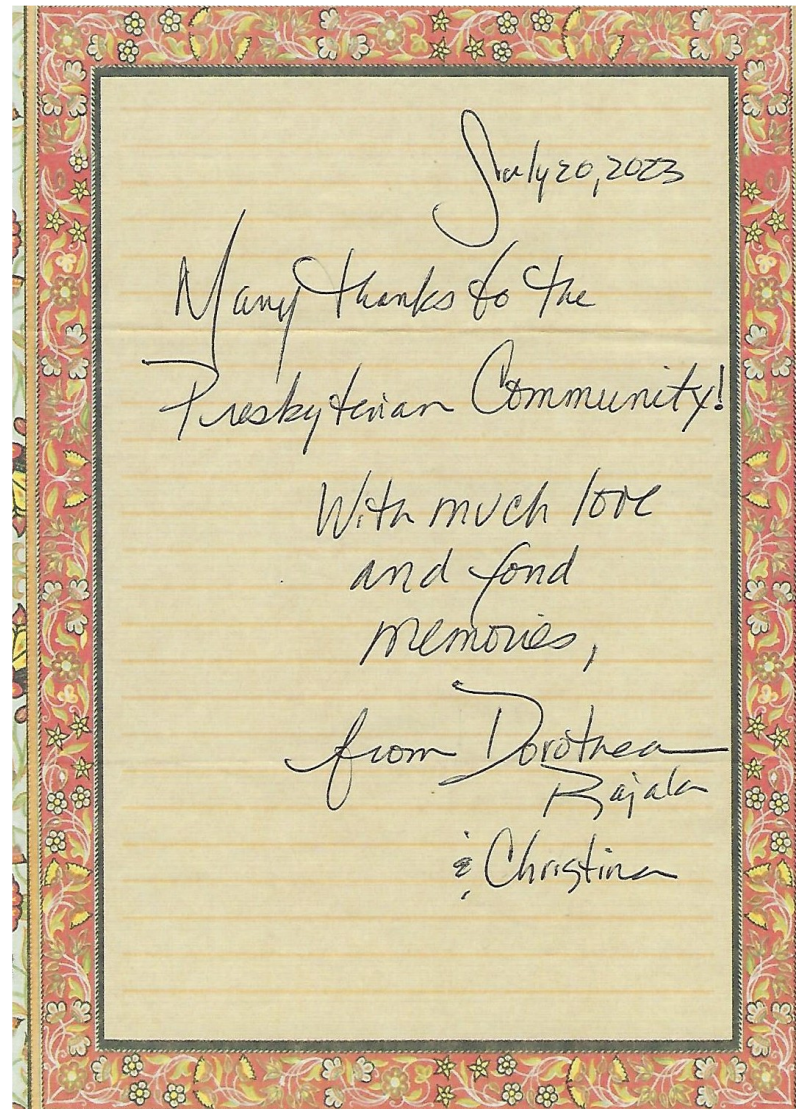 July 20, 2023
Many thanks to the
Presbyterian Community!
With much love
and fond
memories,
from Dorothea
Rajala
& Christina